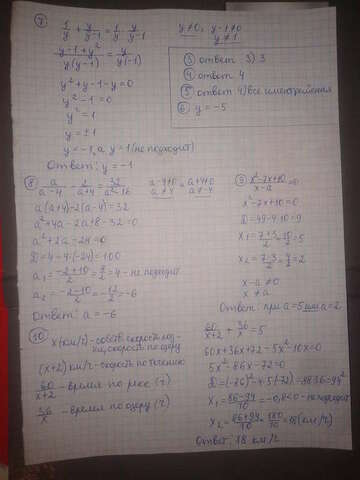 7
1/y + y/(y-1) = 1/y · y/(y-1)
y≠0, y-1≠0
y≠1
(y-1+y²)/(y(y-1)) = y/(y(y-1))
y²+y-1-y=0
y²-1=0
y²=1
y=±1
y=-1, а y=1 (не подходит)
Ответ: y=-1
3 ответ 3) 3
4 ответ 4
5 ответ 4) все
6 y=-5
8 a/(a-4) - 2/(a+4) = 32/(a²-16)
a-4≠0 a+4≠0
a≠4 a≠-4
a(a+4)-2(a-4)=32
a²+4a-2a+8-32=0
a²+2a-24=0
D=4-4·(-24)=100
a₁=(-2+10)/2=8/2=4 - не подходит
a₂=(-2-10)/2=-12/2=-6
Ответ: a=-6
9 (x²-7x+10)/(x-a)=0
x²-7x+10=0
D=49-4·10=9
x₁=(7+3)/2=10/2=5
x₂=(7-3)/2=4/2=2
x-a≠0
x≠a
Ответ: при a=5 или a=2
10 x (км/ч) - собств. скорость лод-
ки, скорость по озеру
(x+2) км/ч - скорость по течению
60/(x+2) - время по реке (ч)
36/x - время по озеру (ч)
60/(x+2) + 36/x = 5
60x+36x+72-5x²-10x=0
5x²-86x-72=0
D=(-86)²-4·5(-72)=8836=94²
x₁=(86-94)/10=-0,8<0 - не подходит
x₂=(86+94)/10=180/10=18 (км/ч)
Ответ: 18 км/ч